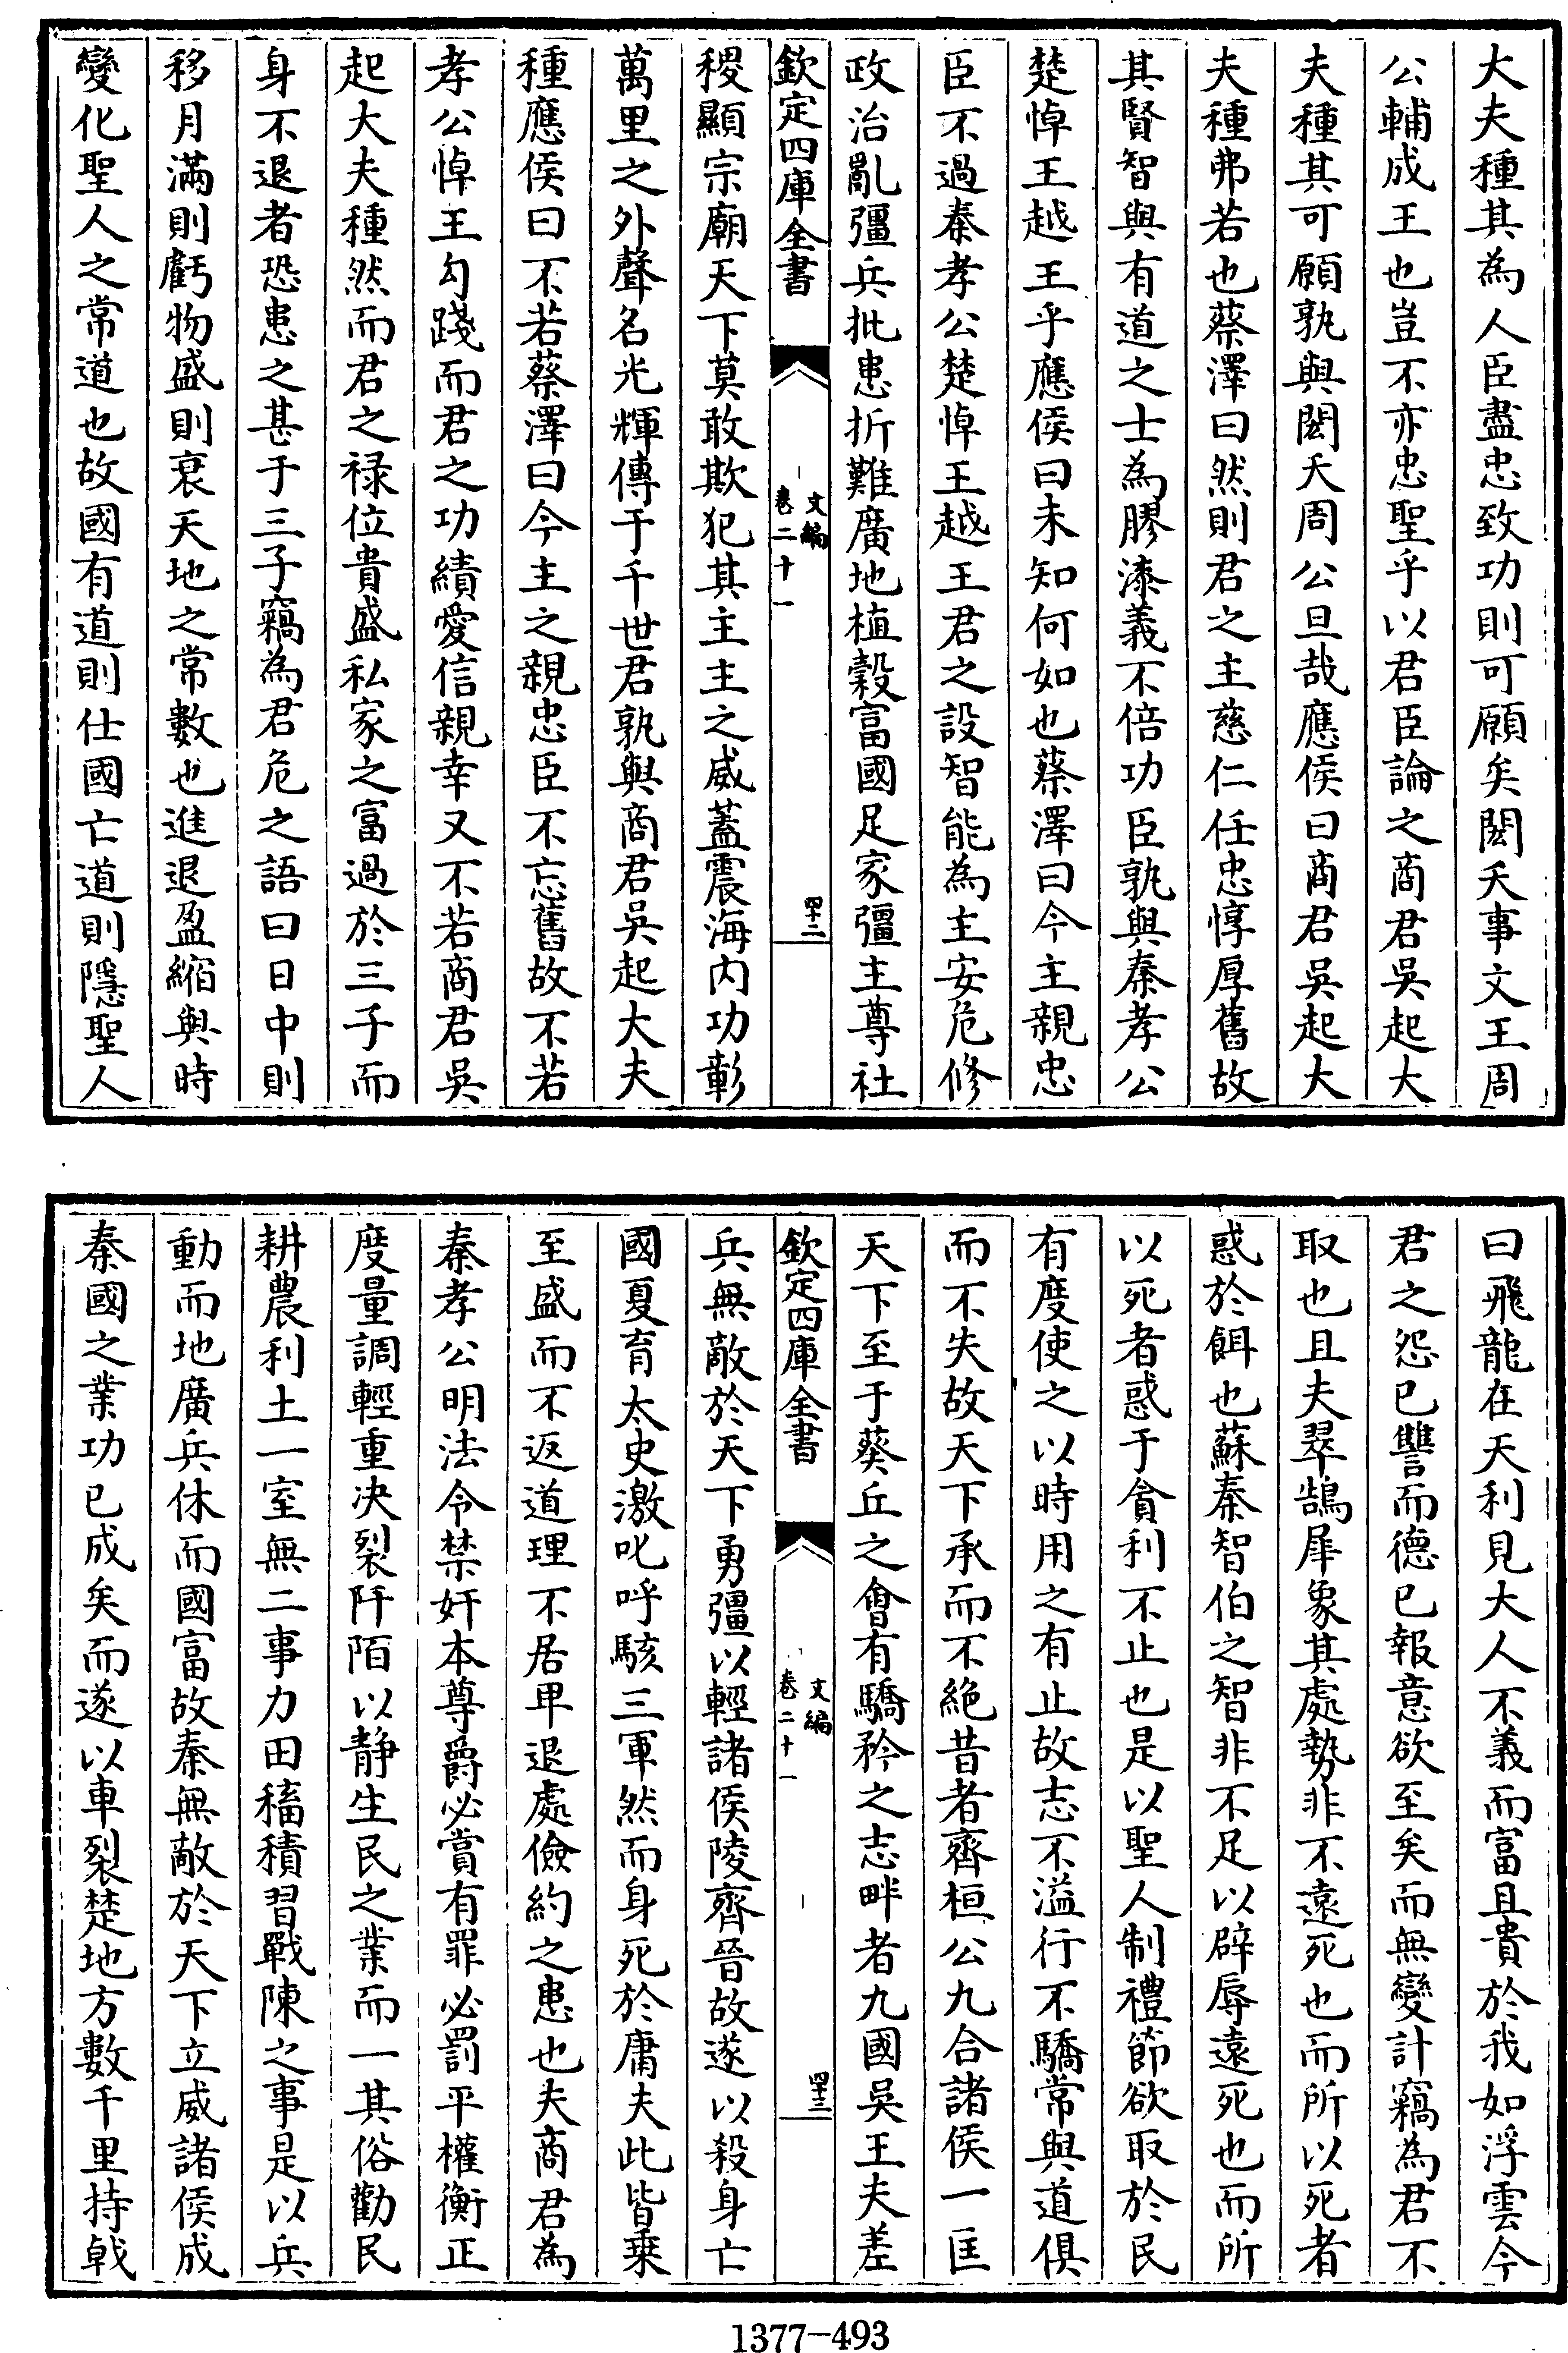 大夫種其為人臣盡忠致功則可願矣閎夭事文王周
公輔成王也豈不亦忠聖乎以君臣論之商君吳起大
夫種其可願孰與閎夭周公旦哉應侯曰商君吳起大
夫種弗若也蔡澤曰然則君之主慈仁任忠惇厚舊故
其賢智與有道之士為膠漆義不倍功臣孰與秦孝公
楚悼王越王乎應侯曰未知何如也蔡澤曰今主親忠
臣不過秦孝公楚悼王越王君之設智能為主安危修
政治亂彊兵批患折難廣地植穀富國足家彊主尊社
欽定四庫全書 文編 卷二十一 四十二
稷顯宗廟天下莫敢欺犯其主主之威蓋震海內功彰
萬里之外聲名光輝傳于千世君孰與商君吳起大夫
種應侯曰不若蔡澤曰今主之親忠臣不忘舊故不若
孝公悼王勾踐而君之功績愛信親幸又不若商君吳
起大夫種然而君之祿位貴盛私家之富過於三子而
身不退者恐患之甚于三子竊為君危之語曰日中則
移月滿則虧物盛則衰天地之常數也進退盈縮與時
變化聖人之常道也故國有道則仕國亡道則隱聖人
曰飛龍在天利見大人不義而富且貴於我如浮雲今
君之怨已讐而德已報意欲至矣而無變計竊為君不
取也且夫翠鵠犀象其處勢非不遠死也而所以死者
惑於餌也蘇秦智伯之智非不足以辟辱遠死也而所
以死者惑于貪利不止也是以聖人制禮節欲取於民
有度使之以時用之有止故志不溢行不驕常與道俱
而不失故天下承而不絕昔者齊桓公九合諸侯一匡
天下至于葵丘之會有驕矜之志畔者九國吳王夫差
欽定四庫全書 文編 卷二十一 四十三
兵無敵於天下勇彊以輕諸侯陵齊晉故遂以殺身亡
國夏育太史激叱呼駭三軍然而身死於庸夫此皆乗
至盛而不返道理不居卑退處儉約之患也夫商君為
秦孝公明法令禁奸本尊爵必賞有罪必罰平權衡正
度量調輕重决裂阡陌以静生民之業而一其俗勸民
耕農利土一室無二事力田稸積習戰陳之事是以兵
動而地廣兵休而國富故秦無敵於天下立威諸侯成
秦國之業功已成矣而遂以車裂楚地方數千里持戟
1377-493